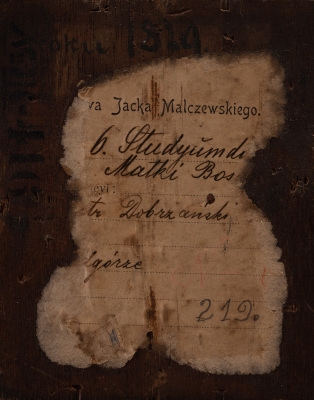 1849
wa Jacka Malczewskiego.
6. Studyum do
Matki Bos
ciel:
tr Dobrzański
dgórze
219.